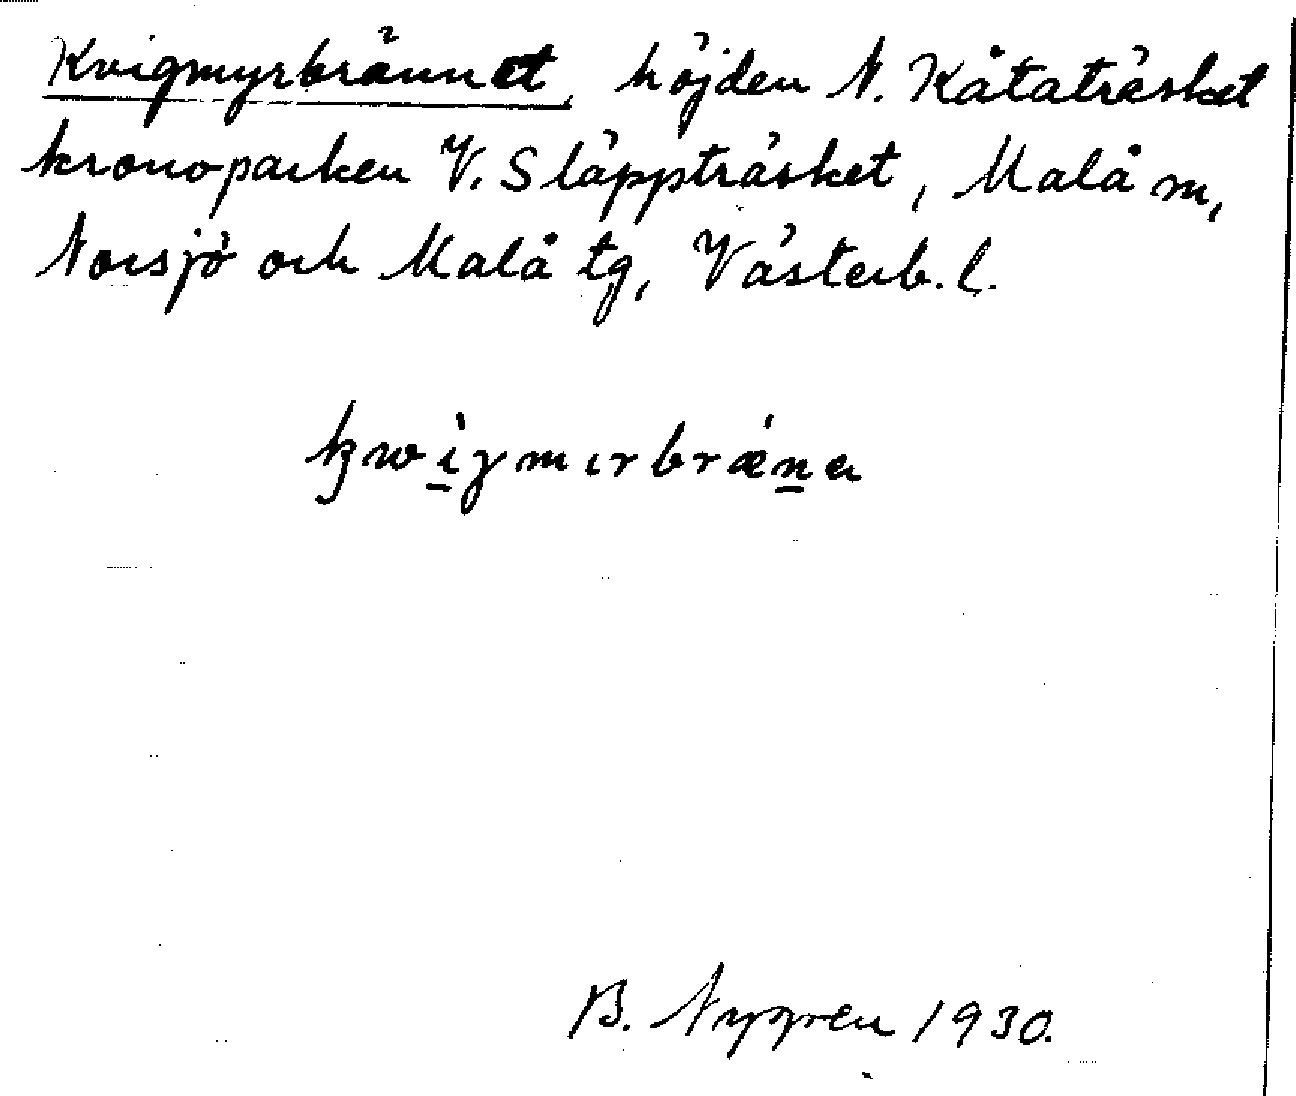 Kvigmyrbrännet, höjden N. Kåtaträsket
kronoparken V. Släppträsket, Malå sn,
Norsjö och Malå tg, Västerb. l.
kwigmırbræ´na
B. Nygren 1930.